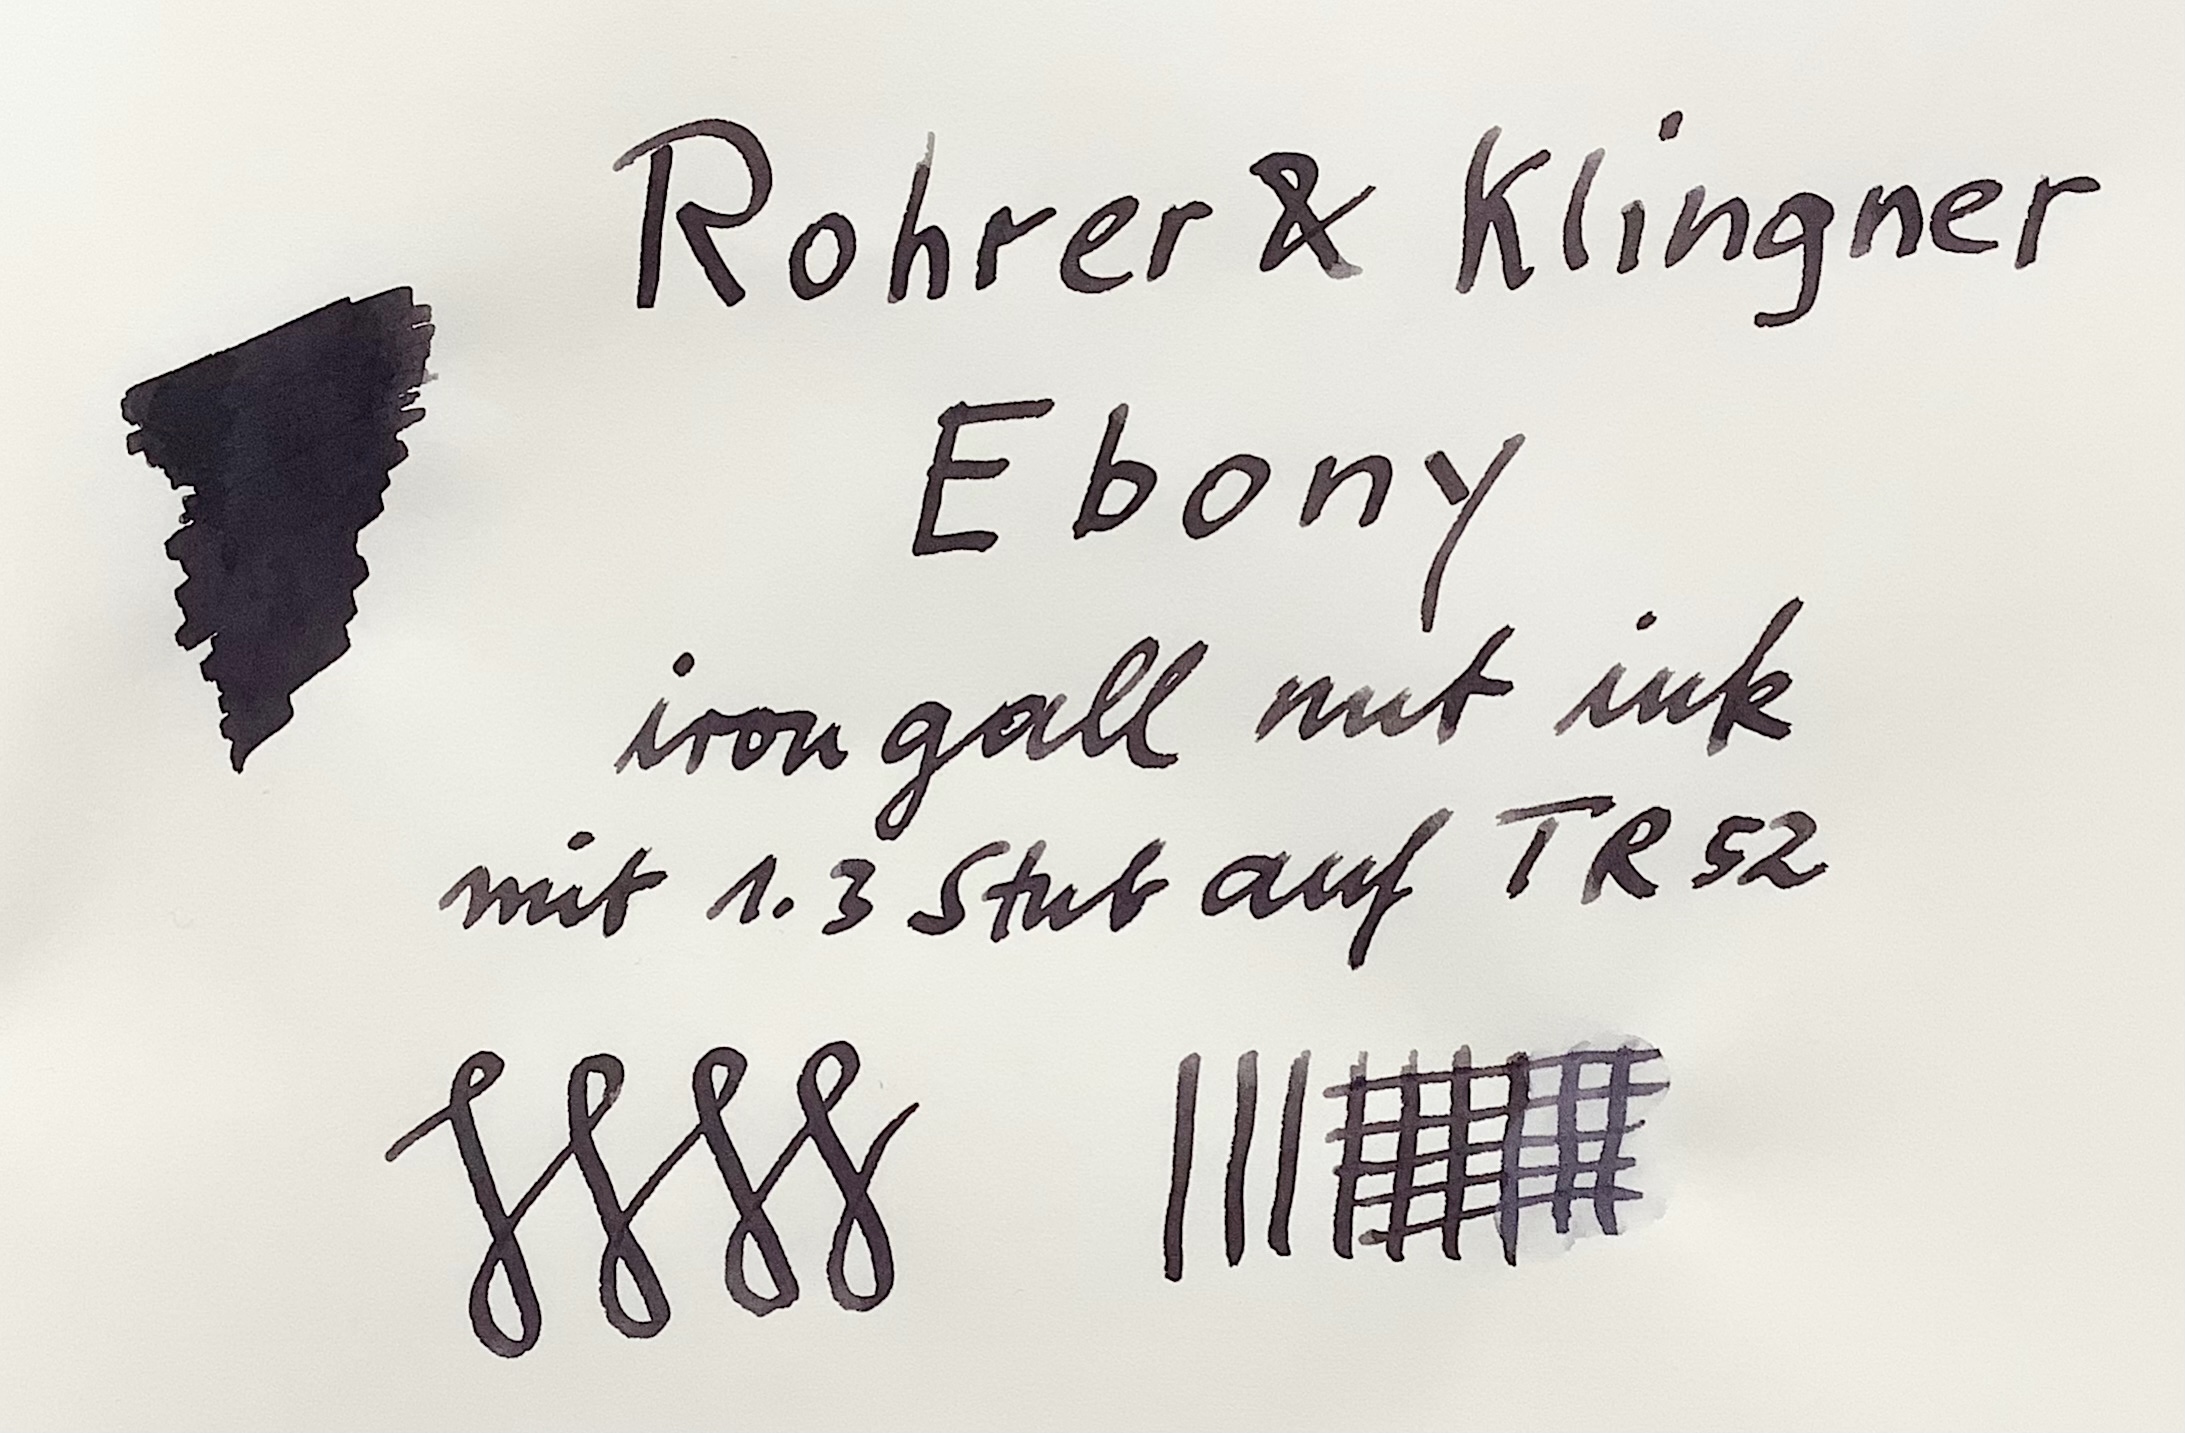 Rohrer & Klingner
Ebony
iron gall nut ink
mit 1.3 Stub auf TR 52